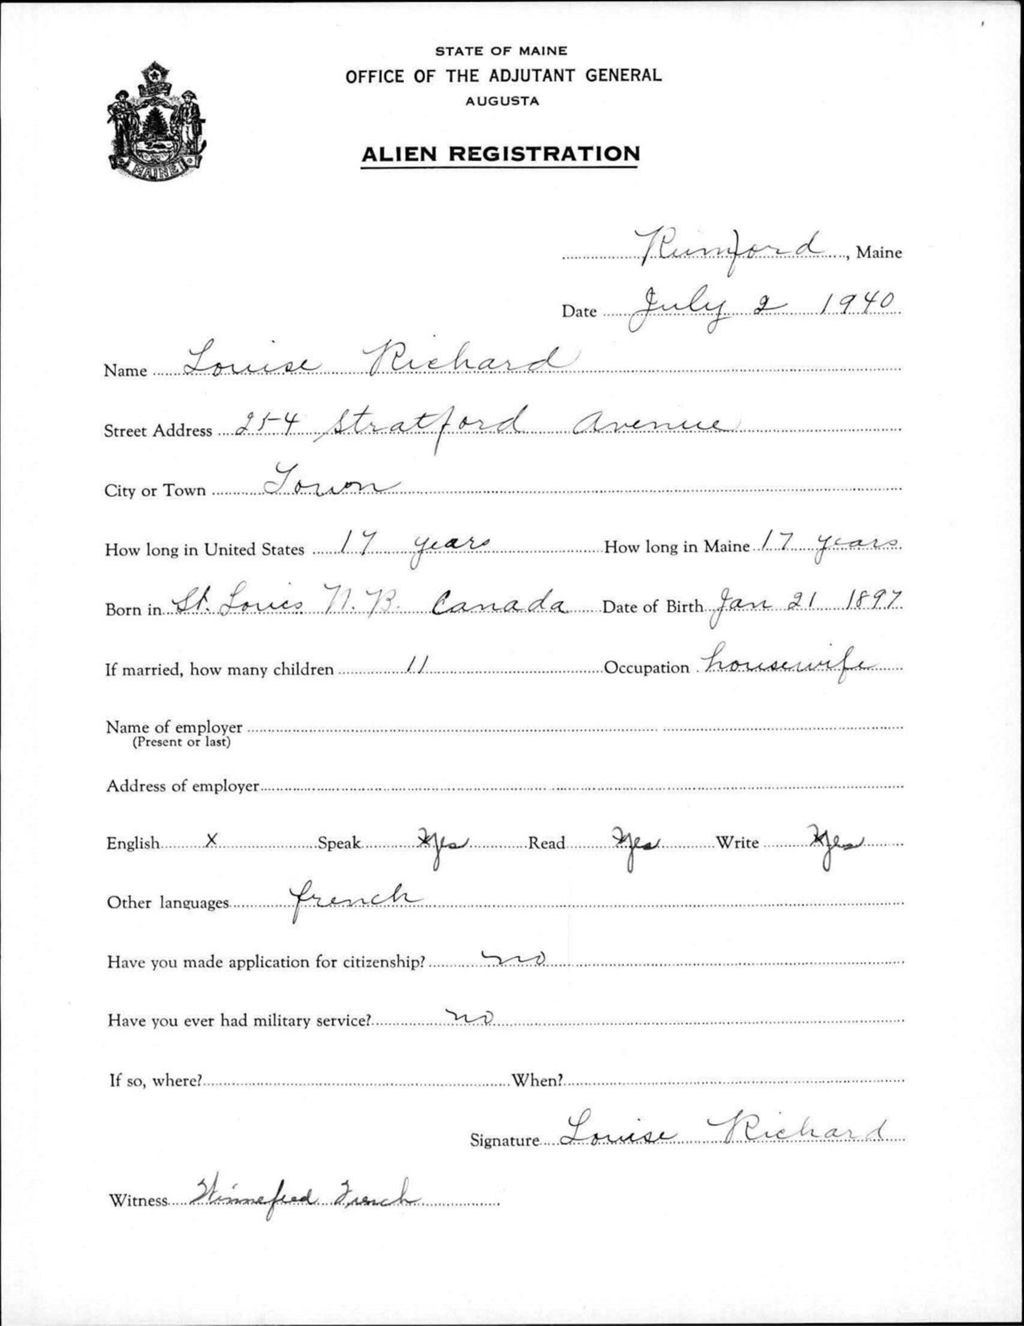 STATE OF MAINE
OFFICE OF THE ADJUTANT GENERAL
AUGUSTA
ALIEN REGISTRATION
MAINE
Rumford, Maine
Date July 2 1940
Name Louise Richard
Street Address 254 Stratford Avenue
City or Town Town
How long in United States 17 years How long in Maine 17 years
Born in St. Louis N.B. Canada Date of Birth Jan 21 1897
If married, how many children 11 Occupation housewife
Name of employer
(Present or last)
Address of employer
English X Speak Yes Read Yes Write Yes
Other languages french
Have you made application for citizenship? no
Have you ever had military service? no
If so, where? When?
Signature Louise Richard
Witness Winnefred French